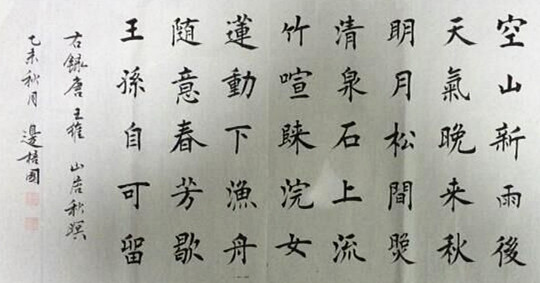 空山新雨後
天氣晚来秋
明月松間照
清泉石上流
竹喧歸浣女
蓮動下漁舟
随意春芳歇
王孫自可留
右録唐王維 山居秋暝
乙未秋月 邊培國